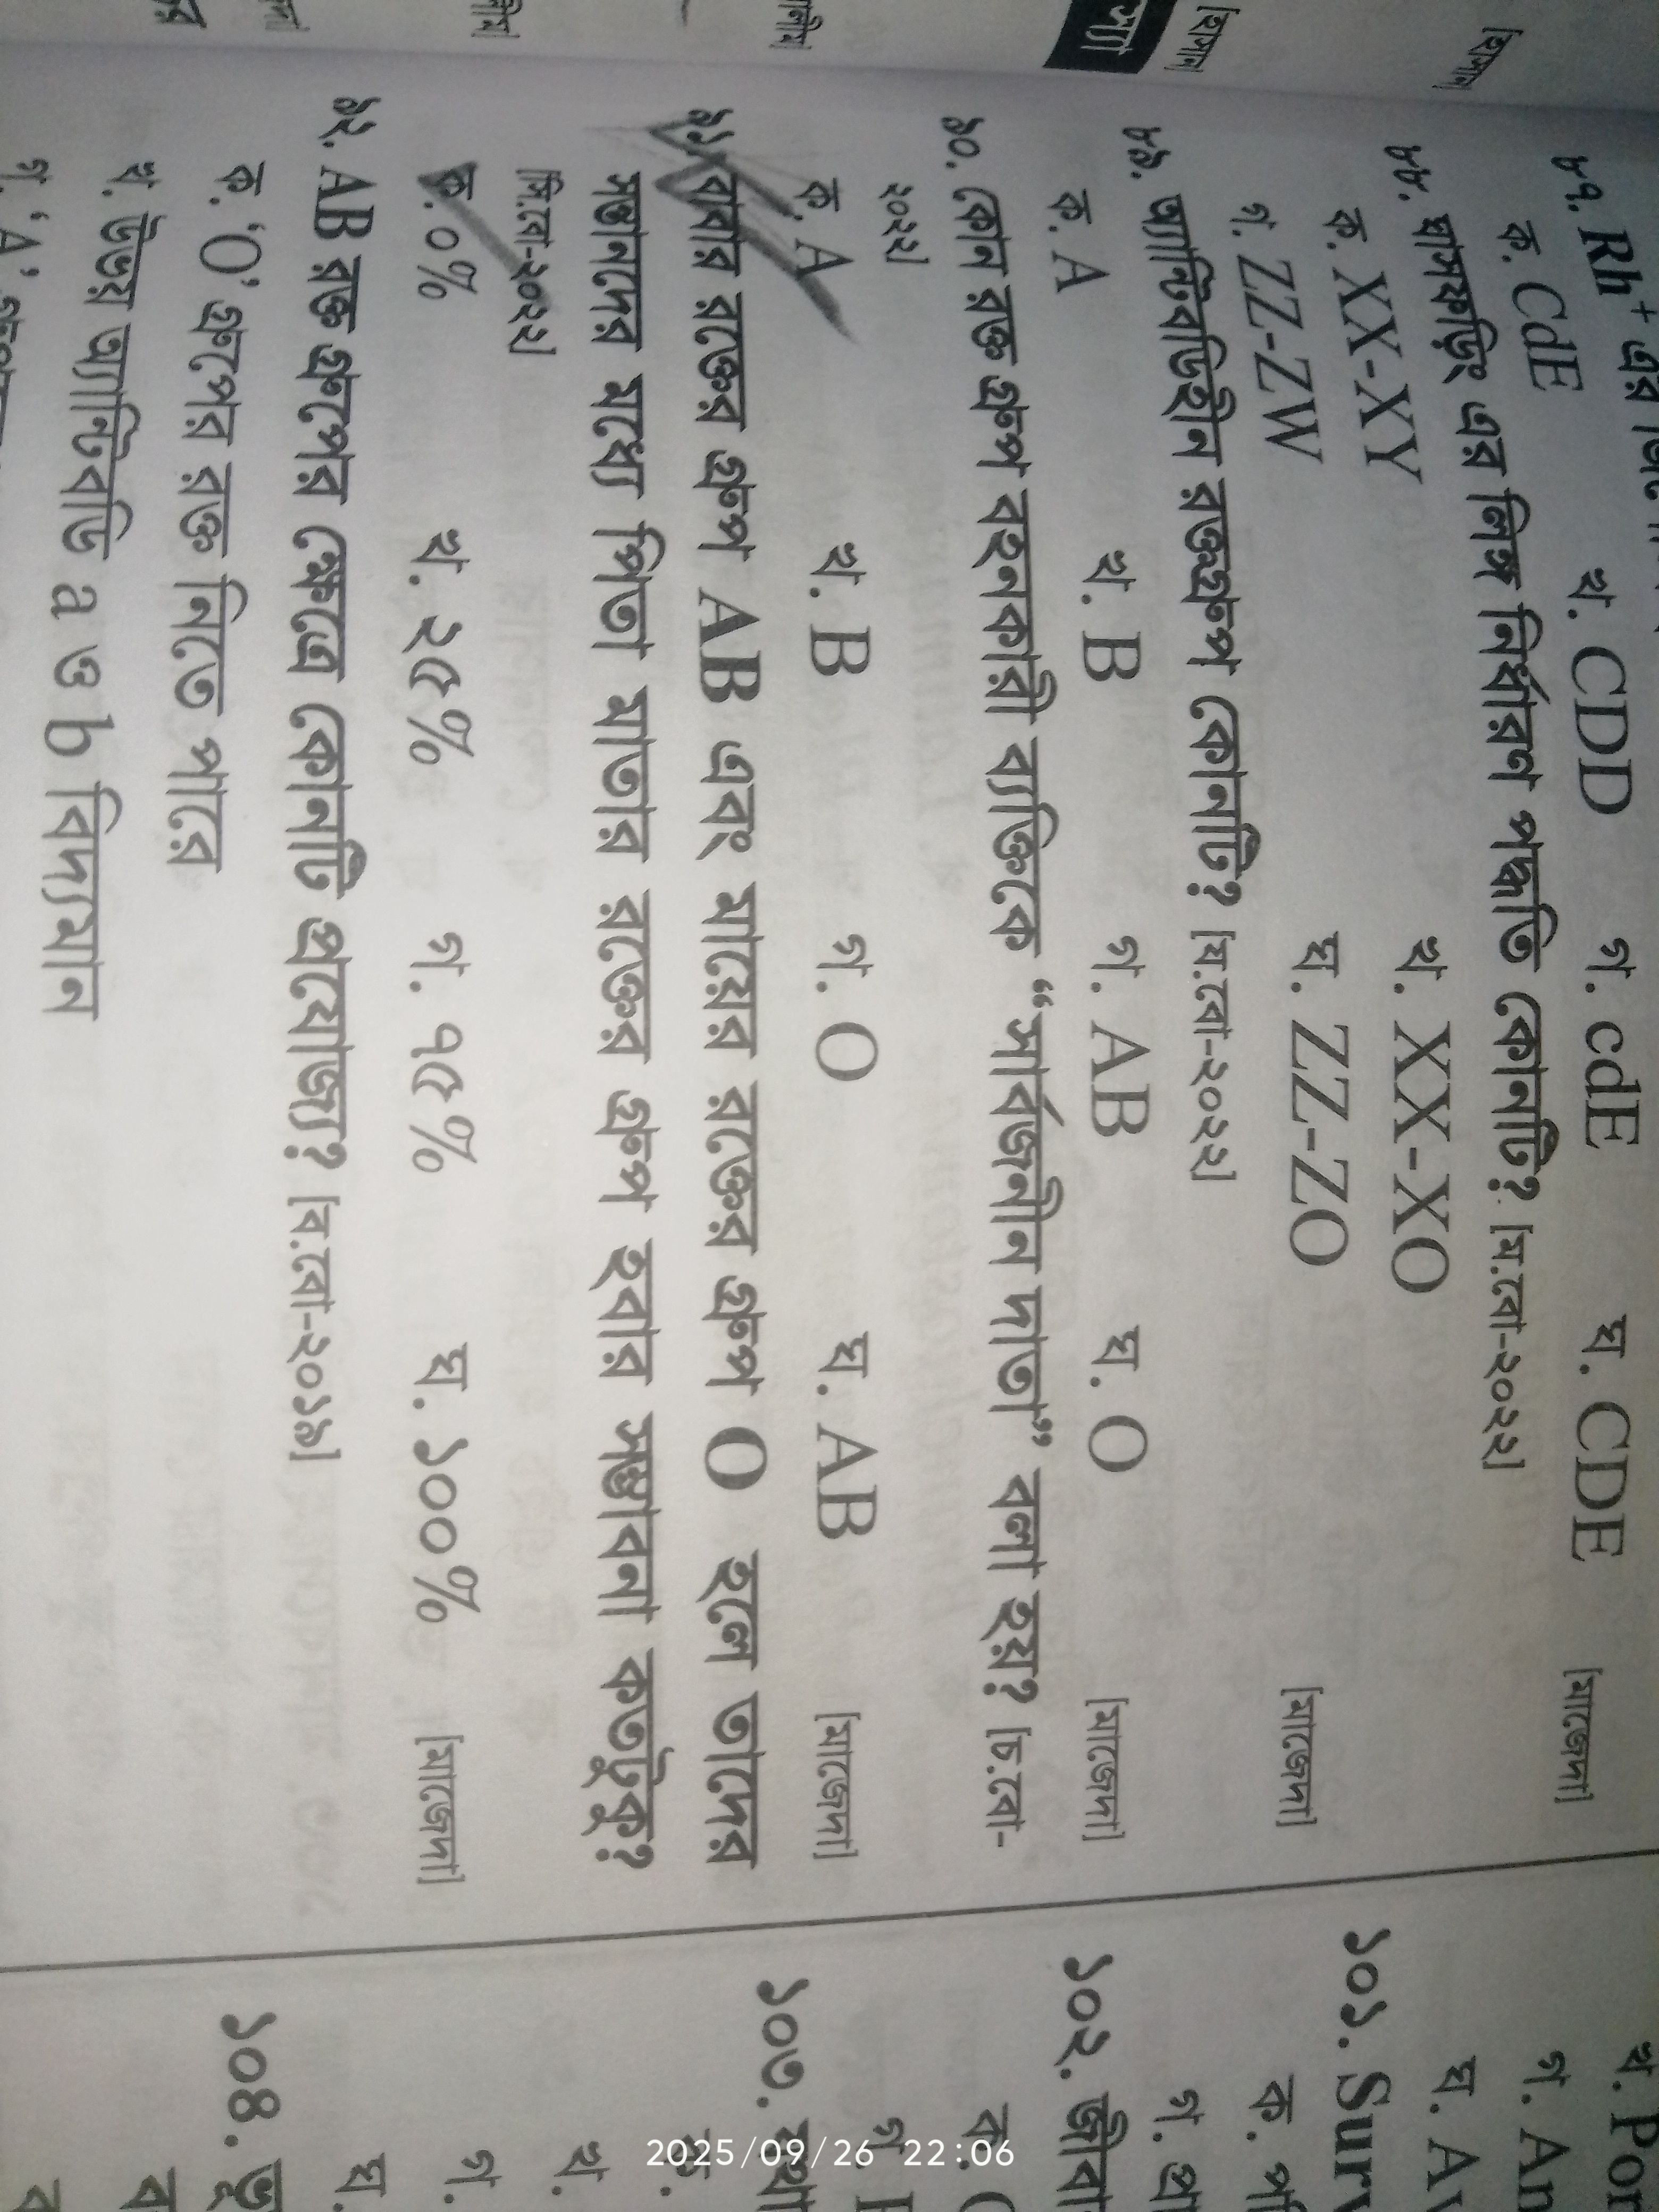 ৮৭. Rh⁺ এর
ক. CdE খ. CDD গ. cdE ঘ. CDE [মাজেদা]
৮৮. ঘাসফড়িং এর লিঙ্গ নির্ধারণ পদ্ধতি কোনটি? [ম.বো-২০২২]
ক. XX-XY খ. XX-XO
গ. ZZ-ZW ঘ. ZZ-ZO [মাজেদা]
৮৯. অ্যান্টিবডিহীন রক্তগ্রুপ কোনটি? [ম.বো-২০২২]
ক. A খ. B গ. AB ঘ. O [মাজেদা]
৯০. কোন রক্ত গ্রুপ বহনকারী ব্যক্তিকে “সার্বজনীন দাতা” বলা হয়? [চ.বো-
২০২২]
ক. A খ. B গ. O ঘ. AB [মাজেদা]
৯১. বাবার রক্তের গ্রুপ AB এবং মায়ের রক্তের গ্রুপ O হলে তাদের
সন্তানদের মধ্যে পিতা মাতার রক্তের গ্রুপ হবার সম্ভাবনা কতটুকু?
[সি.বো-২০২২]
ক. ০% খ. ২৫% গ. ৭৫% ঘ. ১০০% [মাজেদা]
৯২. AB রক্ত গ্রুপের ক্ষেত্রে কোনটি প্রযোজ্য? [ব.বো-২০১৯]
ক. ‘O’ গ্রুপের রক্ত নিতে পারে
খ. উভয় অ্যান্টিবডি a ও b বিদ্যমান
গ. ‘A’
খ. Por
গ. Am
ঘ. Av
১০১. Surv
ক.
গ.
১০২.
ক. C
গ.
১০৩.
ক.
খ.
গ.
ঘ.
১০৪.
2025/09/26 22:06